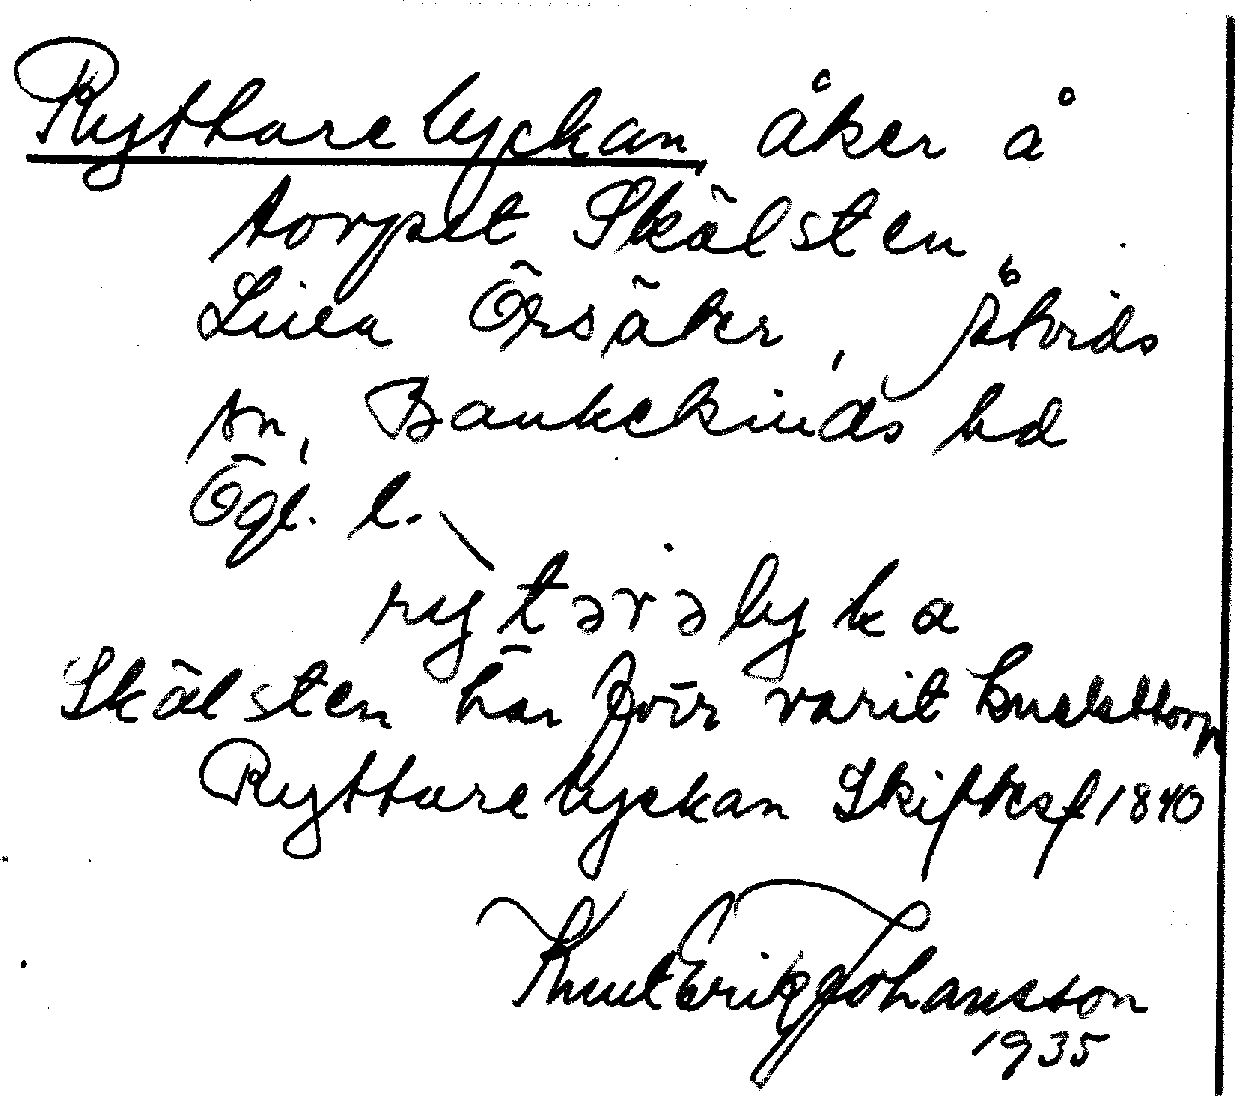 Ryttarelyckan, åker å
torpet Skälsten
Lilla Örsäker, Åtvids
sn, Bankekinds hd
Ögl. l.
rytərəlyka
Skälsten har förr varit husartorp
Ryttarelyckan Skiftesf 1840
Knut Erik Johansson
1935